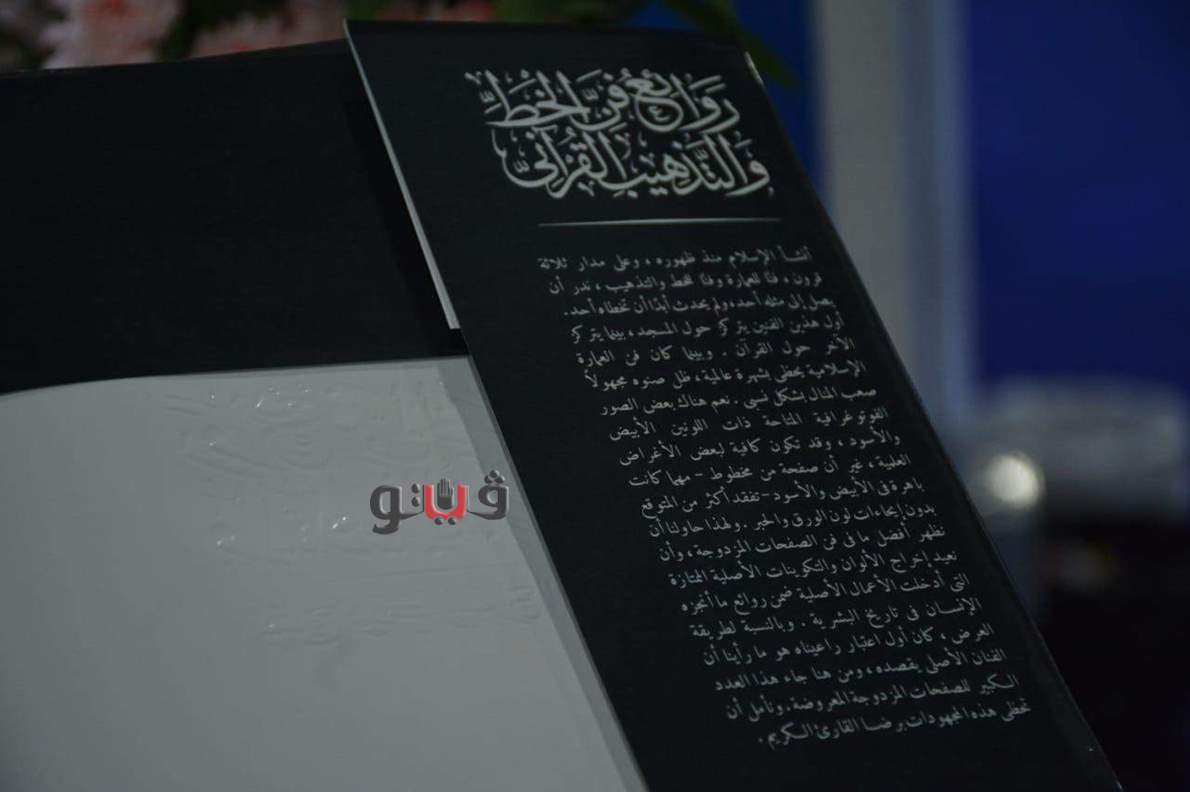 روائع فن الخط
والتذهيب القرآني
أنشأ الإسلام منذ ظهوره، وعلى مدار ثلاثة
قرون، فنًّا للعمارة وفنًّا للخط والتذهيب، ندر أن
يصل إلى مثله أحد، ولم يحدث أبدًا أن تخطاه أحد.
أول هذين الفنين يتركز حول المسجد، بينما يتركز
الآخر حول القرآن. وبينما كان فن العمارة
الإسلامية يحظى بشهرة عالمية، ظل صنوه مجهولاً
صعب المنال بشكل نسبى. نعم هناك بعض الصور
الفوتوغرافية المتاحة ذات اللونين الأبيض
والأسود، وقد تكون كافية لبعض الأغراض
العلمية، غير أن صفحة من مخطوط - مهما كانت
باهرة فى الأبيض والأسود - تفقد أكثر من المتوقع
بدون إيحاءات لون الورق والحبر. ولهذا حاولنا أن
نظهر أفضل ما فى فن الصفحات المزدوجة، وأن
نعيد إخراج الألوان والتكوينات الأصلية الممتازة
التى أدخلت الأعمال الأصلية ضمن روائع ما أنجزه
الإنسان فى تاريخ البشرية. وبالنسبة لطريقة
العرض، كان أول اعتبار راعيناه هو ما رأينا أن
الفنان الأصلى يقصده، ومن هنا جاء هذا العدد
الكبير للصفحات المزدوجة المعروضة. ونأمل أن
تحظى هذه المجهودات برضا القارئ الكريم.
ڤيتو